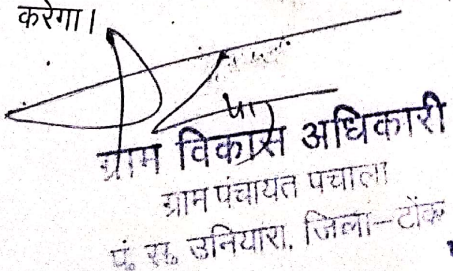 करेगा।
ग्राम विकास अधिकारी
ग्राम पंचायत पचाला
पं. स. उनियारा, जिला-टोंक